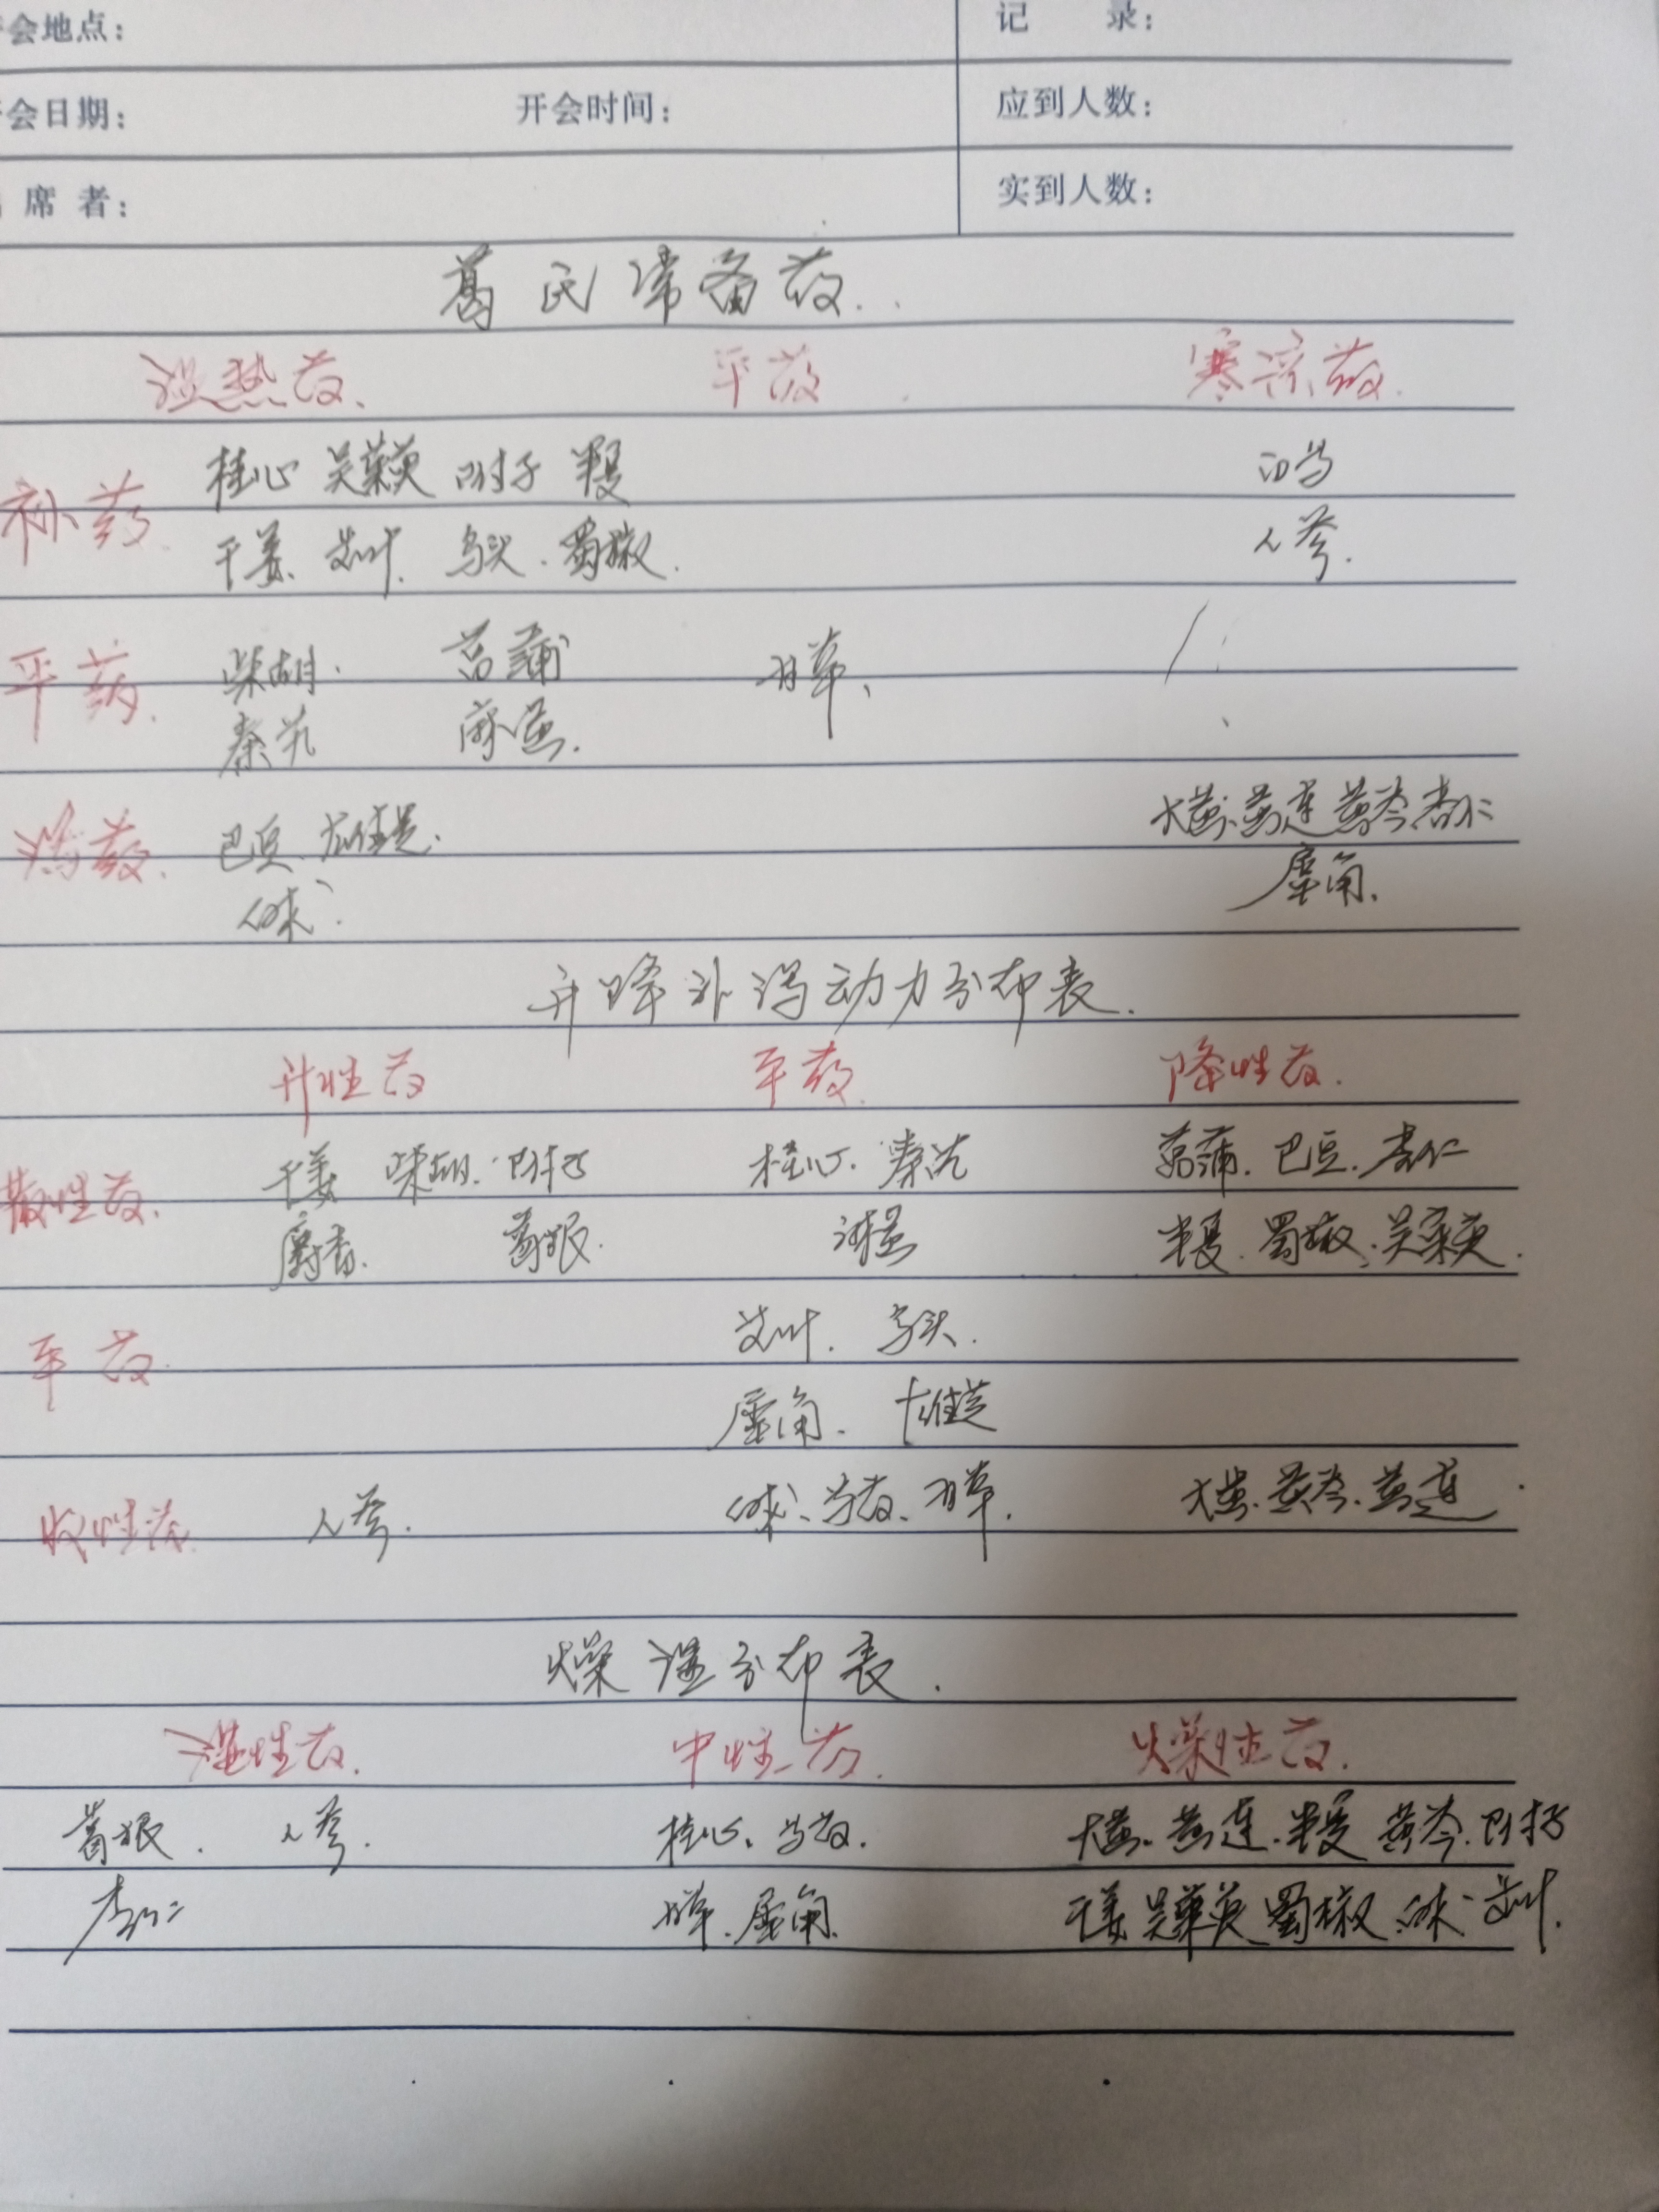 会地点： 记 录：
会日期： 开会时间： 应到人数：
席 者： 实到人数：
葛氏常备药.
温热药. 平药. 寒凉药.
补药 桂心 吴茱萸 附子 半夏
干姜、艾叶. 乌头. 蜀椒. 人参.
平药. 柴胡. 菖蒲 甘草、
秦艽
泻药. 巴豆、 大黄、黄连 黄芩 杏仁
犀角.
升降补泻动力分布表.
升性药 平药. 降性药.
散性药. 干姜 柴胡. 附子 桂心. 秦艽 菖蒲. 巴豆. 杏仁
麝香. 葛根. 半夏. 蜀椒. 吴茱萸.
平药. 艾叶. 乌头.
犀角.
收性药. 人参. 甘草. 大黄. 黄芩. 黄连
燥湿分布表.
湿性药. 中性药. 燥性药.
葛根. 人参. 桂心. 大黄. 黄连. 半夏 黄芩. 附子
杏仁 甘草. 犀角. 干姜 吴茱萸 蜀椒. 艾叶.